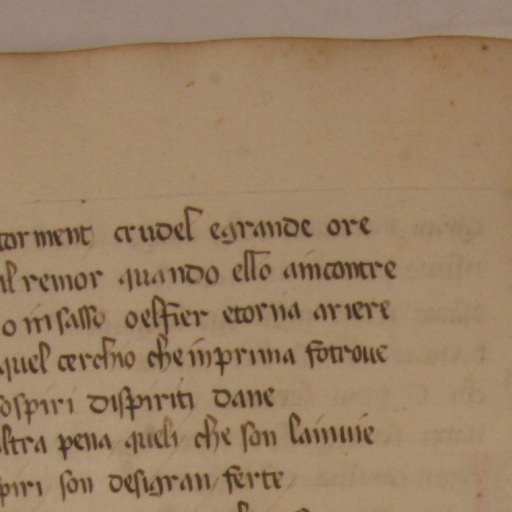 torment crudel egrande ore
al remor quando ello aincontre
o in sasso oelfier etorna ariere
quel cerchio che inprima fotroue
sospiri dispiriti dane
altra pena queli che son lainuie
spiri son desigran ferte